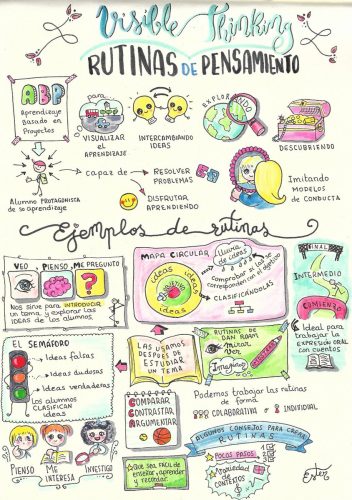 Visible Thinking
RUTINAS DE PENSAMIENTO
ABP
Aprendizaje
Basado en
Proyectos
para
VISUALIZAR
el
APRENDIZAJE
INTERCAMBIANDO
IDEAS
EXPLORANDO
DESCUBRIENDO
Alumno PROTAGONISTA
de su aprendizaje
capaz de
RESOLVER
PROBLEMAS
DISFRUTAR
APRENDIENDO
Imitando
MODELOS
DE CONDUCTA
Ejemplos de rutinas
VEO PIENSO ME PREGUNTO
?
Nos sirve para INTRODUCIR
un tema y explorar las
IDEAS de los alumnos.
MAPA CIRCULAR
ideas
ideas
objetivo
ideas
ideas
lluvia
de ideas
comprobar si las ideas se
corresponden con el objetivo
CLASIFICÁNDOLAS
FINAL
INTERMEDIO
COMIENZO
Ideal para
trabajar la
EXPRESIÓN ORAL
con cuentos
EL SEMÁFORO
Ideas falsas
Ideas dudosas
Ideas verdaderas
Los alumnos
CLASIFICAN
IDEAS
LAS USAMOS
DESPUÉS DE
ESTUDIAR
UN TEMA
RUTINAS DE
DAN ROAM
Mirar
Ver
Imaginar
MOSTRAR
PIENSO
ME
INTERESA
INVESTIGO
COMPARAR
CONTRASTAR
ARGUMENTAR
Podemos trabajar las rutinas
de forma
COLABORATIVA
O INDIVIDUAL
ALGUNOS CONSEJOS PARA CREAR
RUTINAS
POCOS PASOS
Variedad
de
CONTEXTOS
Que sea fácil de
enseñar, aprender
y recordar
Ester